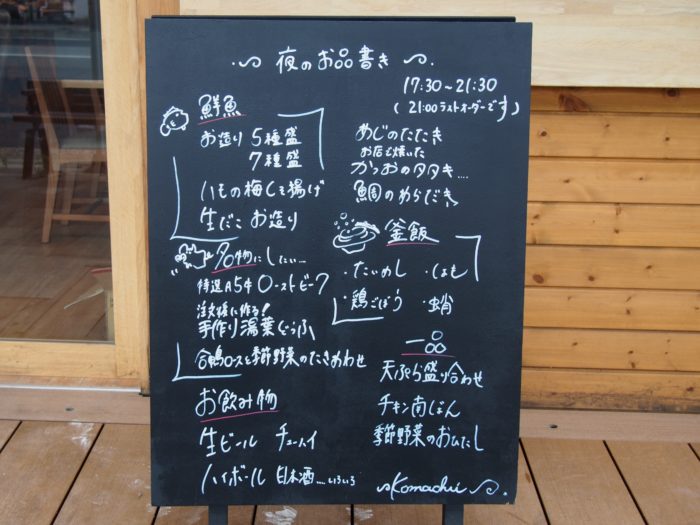 夜のお品書き
17:30~21:30
(21:00 ラストオーダーです)
鮮魚
お造り 5種盛
7種盛
はもの梅しそ揚げ
生だこ お造り
めじのたたき
お店で焼いた
かつおのタタキ....
鯛のあらだき
名物にしたい...
特選A5牛ローストビーフ
注文後に作る!
手作り湯葉どうふ
合鴨ロースと季節野菜のたきあわせ
釜飯
・たいめし ・はも
・鶏ごぼう ・蛸
お飲み物
生ビール チューハイ
ハイボール 日本酒....いろいろ
一品
天ぷら盛り合わせ
チキン南ばん
季節野菜のおひたし
Komachi